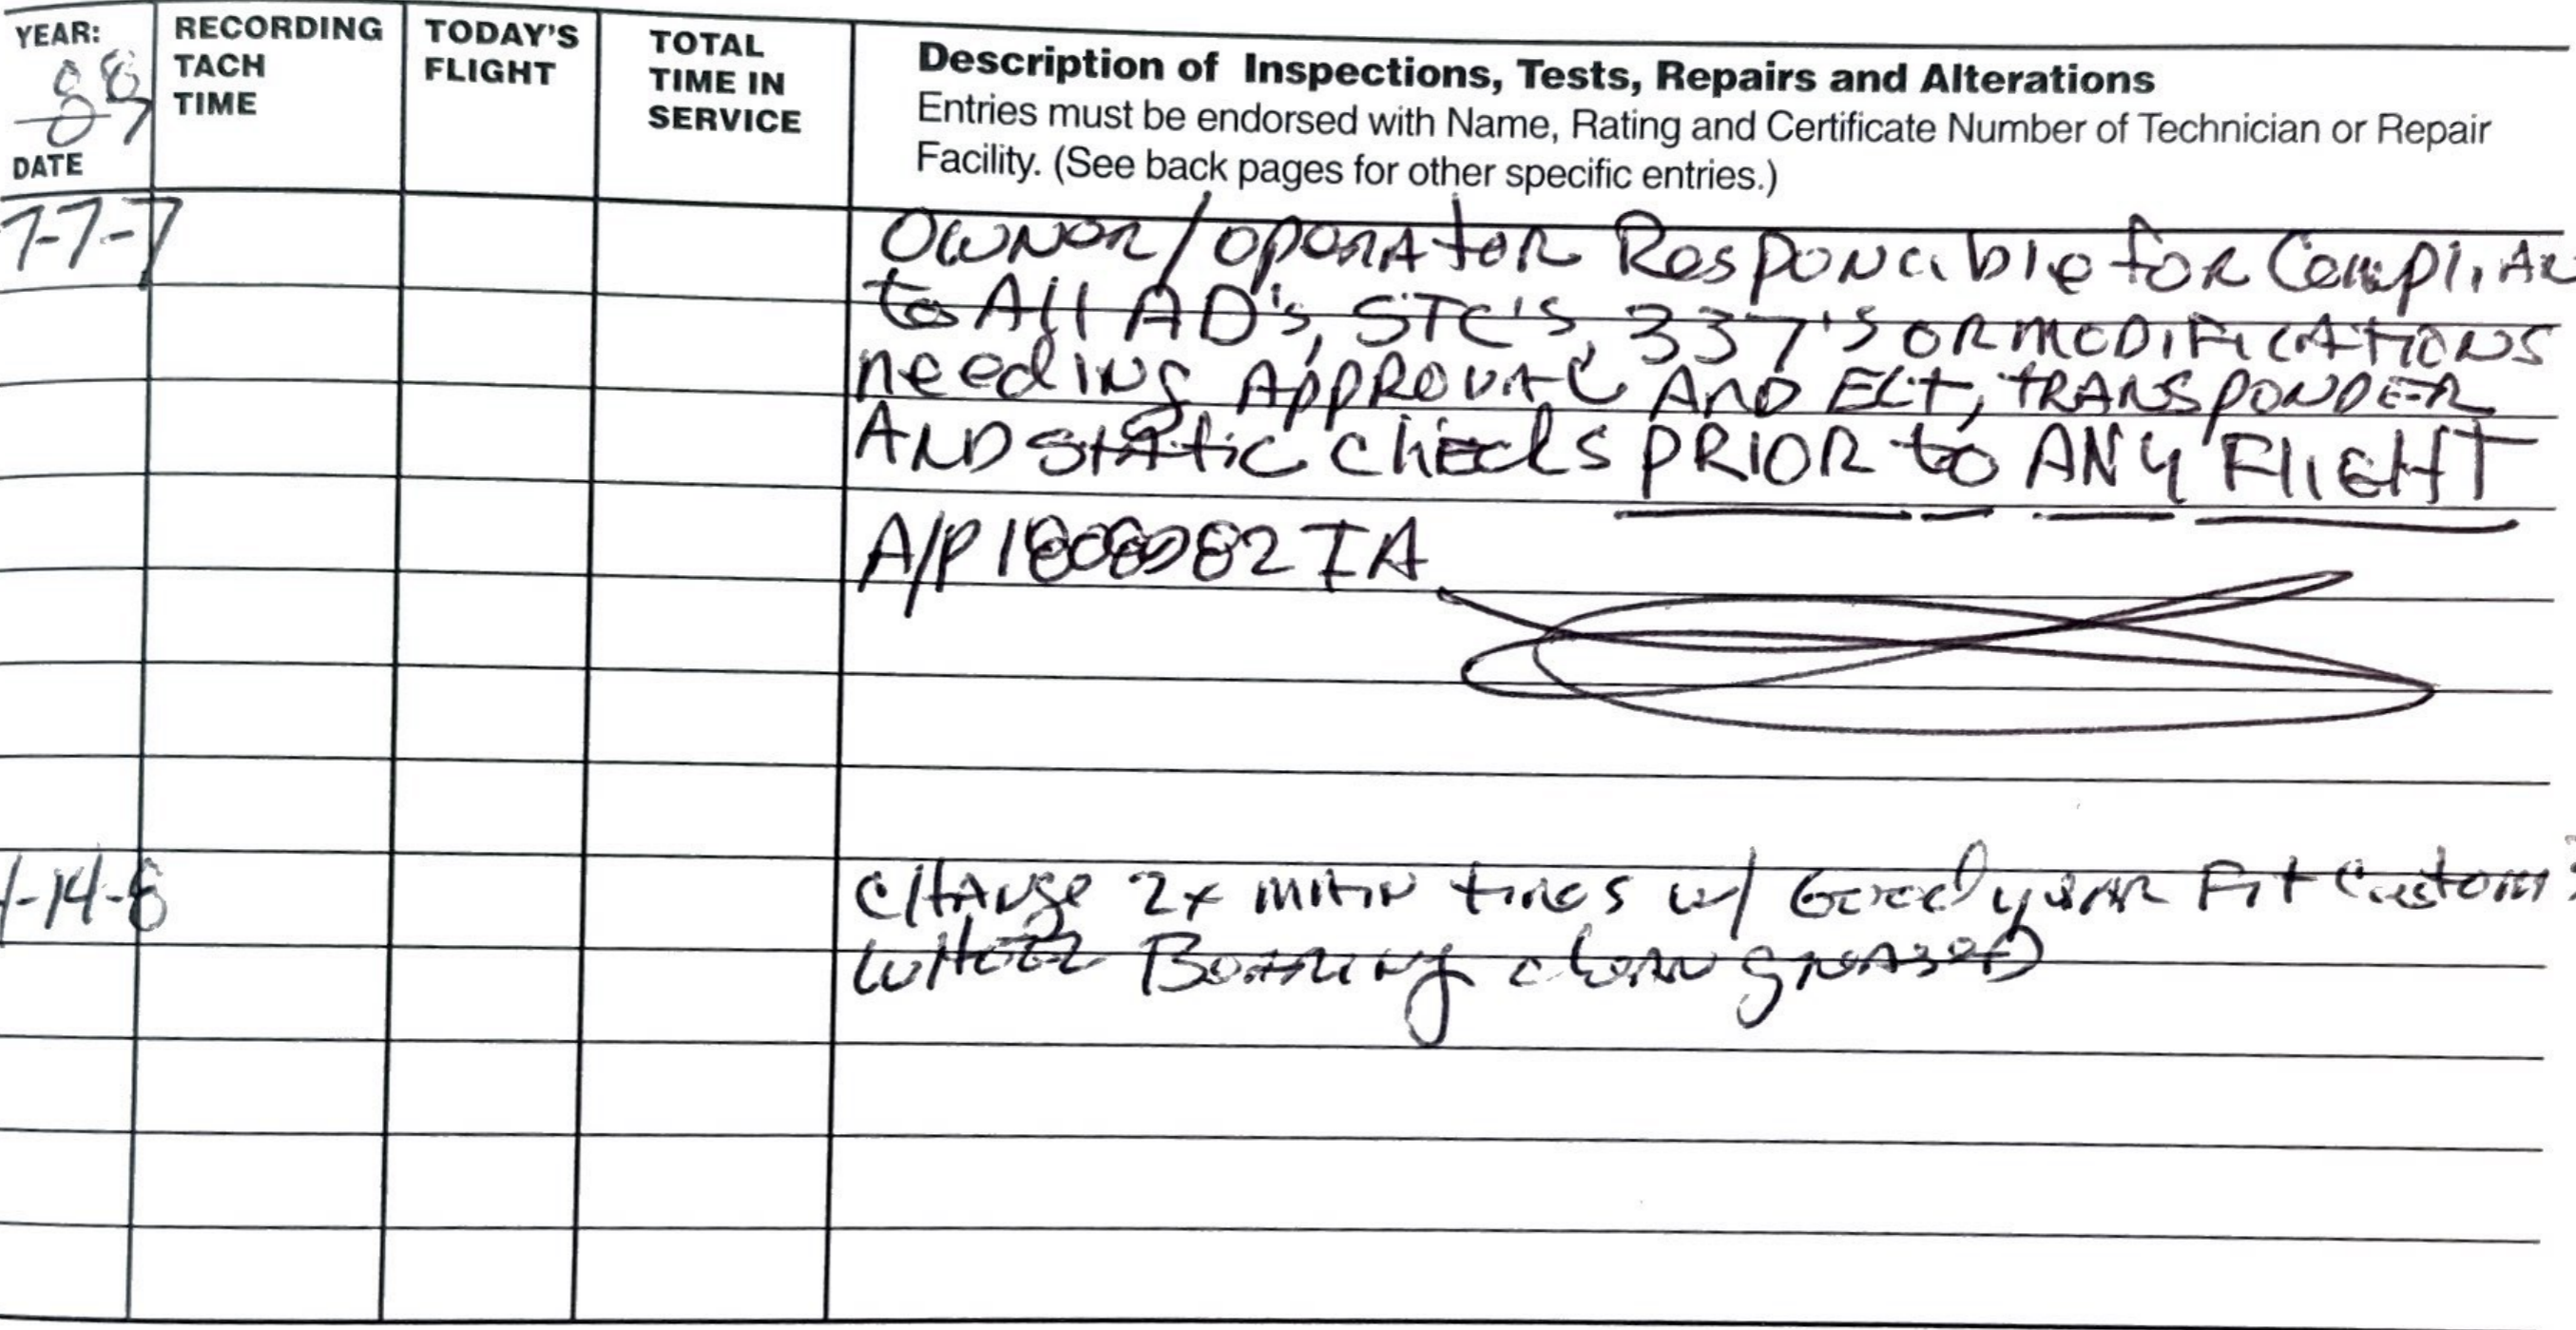 YEAR:
RECORDING TACH TIME
TODAY'S FLIGHT
TOTAL TIME IN SERVICE
Description of Inspections, Tests, Repairs and Alterations
Entries must be endorsed with Name, Rating and Certificate Number of Technician or Repair
Facility. (See back pages for other specific entries.)
DATE
7-7-7
Ownor/oporator Responcible for Complian
to All AD's, STC's, 337's OR MODIFICATIONS
needing APPROVAL AND ELT, TRANSPONDER
AND static checks PRIOR to ANY FLIGHT
A/P IA
1-14-8
CHANge 2x MAIN tires w/ Goodyear Custom
WHEEL Bearing clean greased